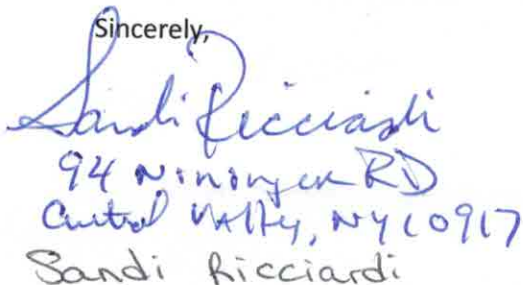 Sincerely,
Sandi Ricciardi
94 Nininger RD
Central Valley, NY 10917
Sandi Ricciardi